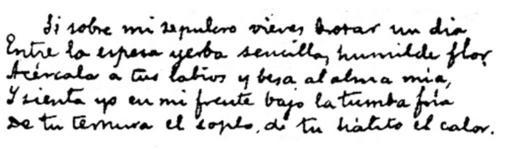 Si sobre mi sepulcro vieres brotar un dia
Entre la espesa yerba sencilla, humilde flor,
Acércala a tus labios y besa al alma mia,
Y sienta yo en mi frente bajo la tumba fria
De tu ternura el soplo, de tu hálito el calor.